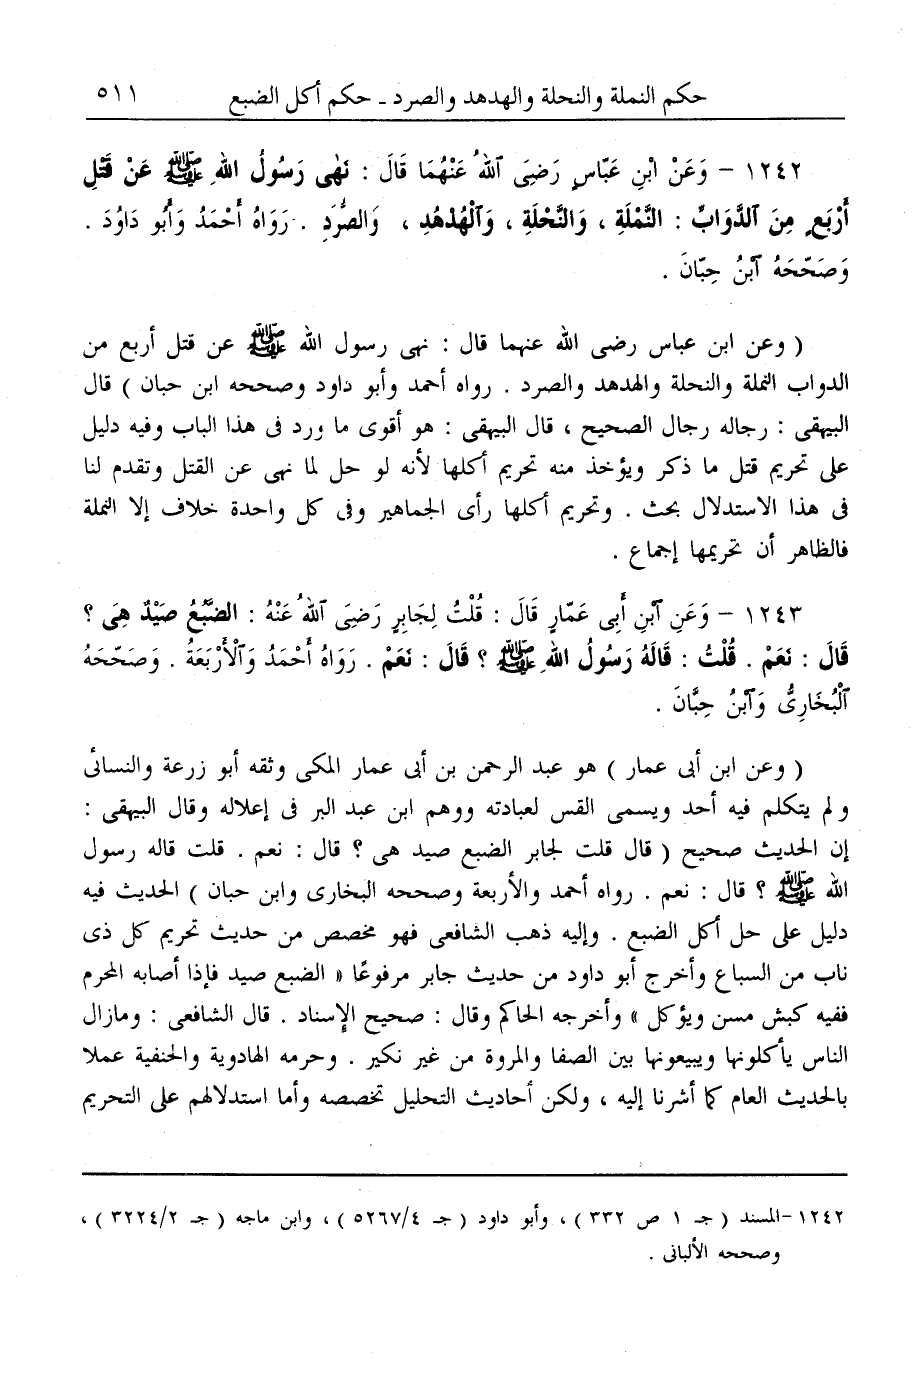 حكم النملة والنحلة والهدهد والصرد - حكم أكل الضبع ٥١١
١٢٤٢ - وَعَنْ ابْنِ عَبَّاسٍ رَضِىَ ٱللهُ عَنْهُمَا قَالَ : نَهَى رَسُولُ اللهِ ﷺ عَنْ قَتْلِ
أَرْبَعٍ مِنَ ٱلدَّوَابِّ : النَّمْلَةِ ، وَالنَّحْلَةِ ، وَٱلْهُدْهُدِ ، وَالصُّرَدِ . رَوَاهُ أَحْمَدُ وَأَبُو دَاوُدَ .
وَصَحَّحَهُ ٱبْنُ حِبَّانَ .
( وعن ابن عباس رضى الله عنهما قال : نهى رسول الله ﷺ عن قتل أربع من
الدواب النملة والنحلة والهدهد والصرد . رواه أحمد وأبو داود وصححه ابن حبان ) قال
البيهقى : رجاله رجال الصحيح ، قال البيهقى : هو أقوى ما ورد فى هذا الباب وفيه دليل
على تحريم قتل ما ذكر ويؤخذ منه تحريم أكلها لأنه لو حل لما نهى عن القتل وتقدم لنا
فى هذا الاستدلال بحث . وتحريم أكلها رأى الجماهير وفى كل واحدة خلاف إلا النملة
فالظاهر أن تحريمها إجماع .
١٢٤٣ - وَعَنِ ٱبْنِ أَبِى عَمَّارٍ قَالَ : قُلْتُ لِجَابِرٍ رَضِىَ ٱللهُ عَنْهُ : الضَّبُعُ صَيْدٌ هِىَ ؟
قَالَ : نَعَمْ . قُلْتُ : قَالَهُ رَسُولُ اللهِ ﷺ ؟ قَالَ : نَعَمْ . رَوَاهُ أَحْمَدُ وَٱلْأَرْبَعَةُ . وَصَحَّحَهُ
ٱلْبُخَارِىُّ وَٱبْنُ حِبَّانَ .
( وعن ابن أبى عمار ) هو عبد الرحمن بن أبى عمار المكى وثقه أبو زرعة والنسائى
ولم يتكلم فيه أحد ويسمى القس لعبادته ووهم ابن عبد البر فى إعلاله وقال البيهقى :
إن الحديث صحيح ( قال قلت لجابر الضبع صيد هى ؟ قال : نعم . قلت قاله رسول
الله ﷺ ؟ قال : نعم . رواه أحمد والأربعة وصححه البخارى وابن حبان ) الحديث فيه
دليل على حل أكل الضبع . وإليه ذهب الشافعى فهو مخصص من حديث تحريم كل ذى
ناب من السباع وأخرج أبو داود من حديث جابر مرفوعًا « الضبع صيد فإذا أصابه المحرم
ففيه كبش مسن ويؤكل » وأخرجه الحاكم وقال : صحيح الإسناد . قال الشافعى : ومازال
الناس يأكلونها ويبيعونها بين الصفا والمروة من غير نكير . وحرمه الهادوية والحنفية عملا
بالحديث العام كما أشرنا إليه ، ولكن أحاديث التحليل تخصصه وأما استدلالهم على التحريم
١٢٤٢-المسند ( جـ ١ ص ٣٣٢ ) ، وأبو داود ( جـ ٥٢٦٧/٤ ) ، وابن ماجه ( جـ ٣٢٢٤/٢ ) ،
وصححه الألبانى .